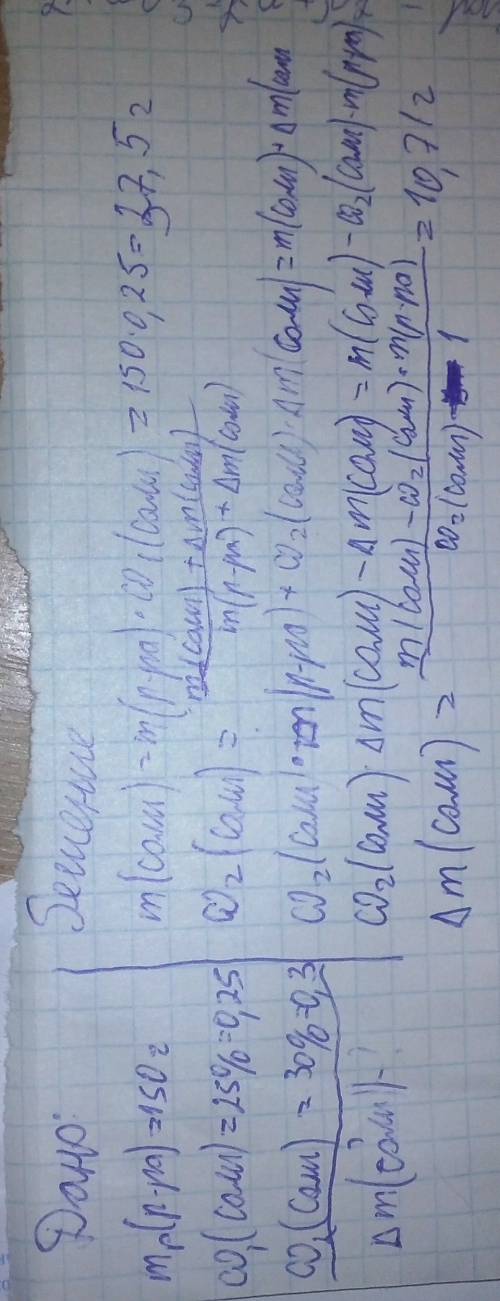 Дано:
m₁(р-ра)=150г
ω₁(соли)=25%=0,25
ω₂(соли)=30%=0,3
Δm(соли)-?
Решение
m(соли)=m(р-ра)·ω₁(соли)=150·0,25=37,5г
ω₂(соли)=(m(соли)+Δm(соли))/(m(р-ра)+Δm(соли))
ω₂(соли)·m(р-ра)+ω₂(соли)·Δm(соли)=m(соли)+Δm(соли
ω₂(соли)·Δm(соли)-Δm(соли)=m(соли)-ω₂(соли)·m(р-ра)
Δm(соли)=(m(соли)-ω₂(соли)·m(р-ра))/(ω₂(соли)-1)=10,71г